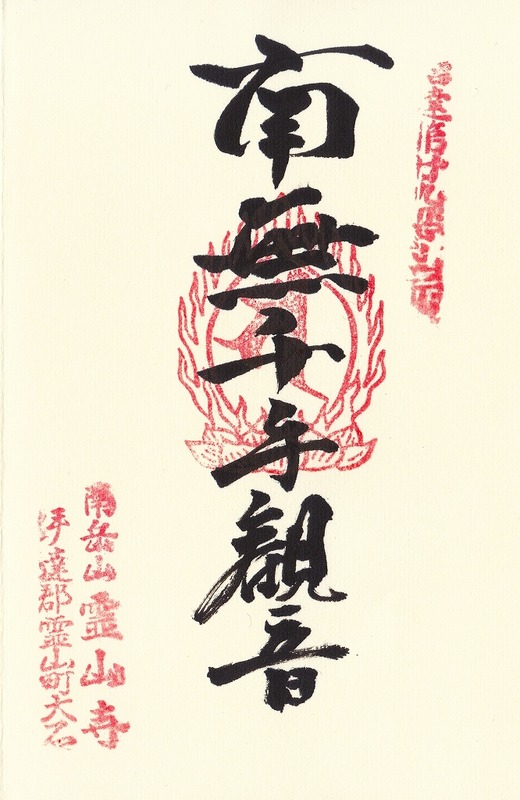 南無千手観音
南岳山 霊山寺
伊達郡霊山町大石